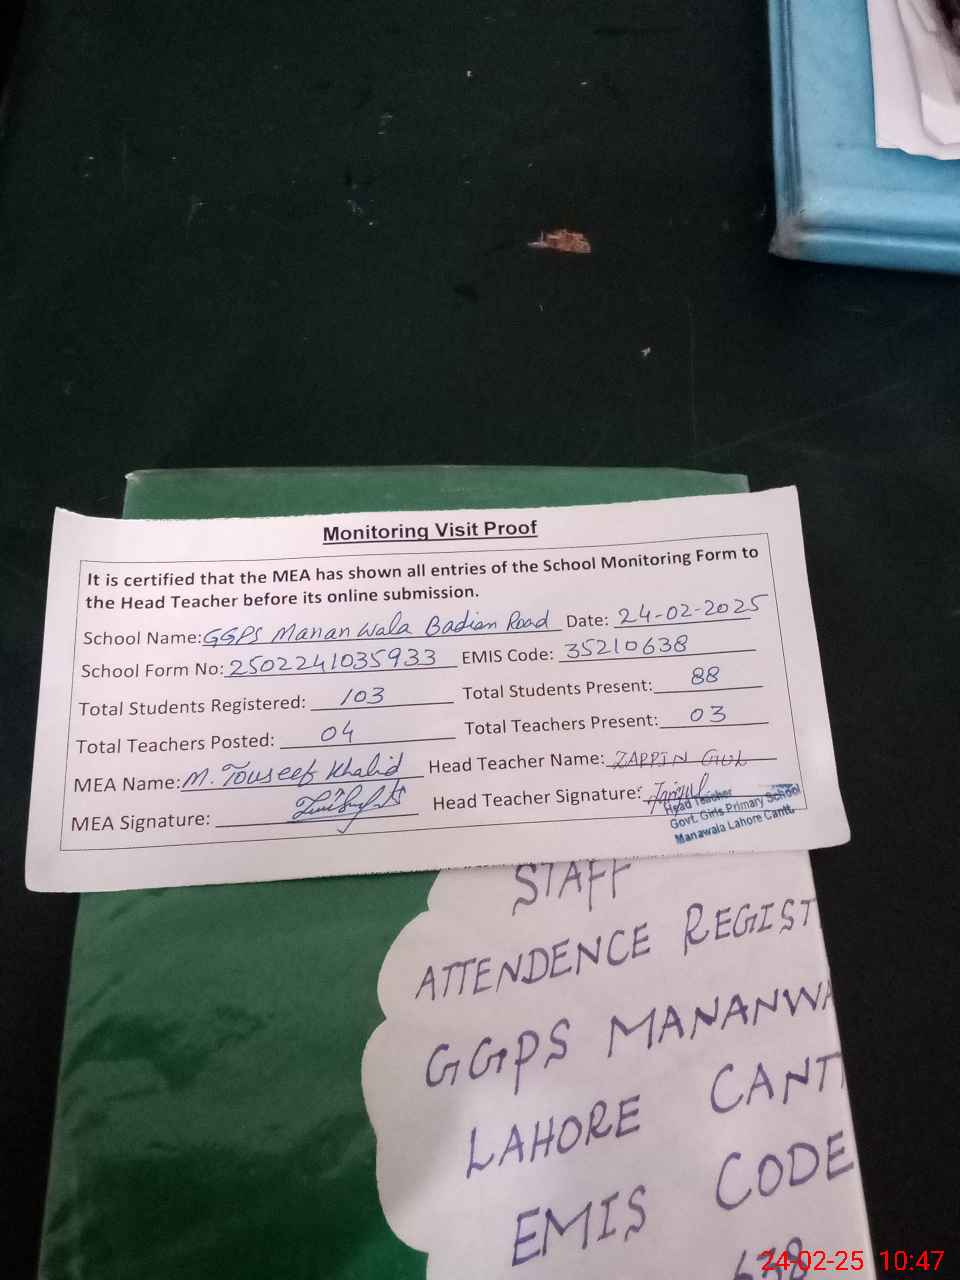 Monitoring Visit Proof
It is certified that the MEA has shown all entries of the School Monitoring Form to
the Head Teacher before its online submission.
School Name: GGPS Manan Wala Badian Road Date: 24-02-2025
School Form No: 2502241035933 EMIS Code: 35210638
Total Students Registered: 103 Total Students Present: 88
Total Teachers Posted: 04 Total Teachers Present: 03
MEA Name: M. Touseef Khalid Head Teacher Name: ZARRIN GUL
MEA Signature: Head Teacher Signature:
Head Teacher
Govt. Girls Primary School
Manawala Lahore Cantt.
STAFF
ATTENDENCE REGIST
GGPS MANANWA
LAHORE CANTT
EMIS CODE
638
24-02-25 10:47